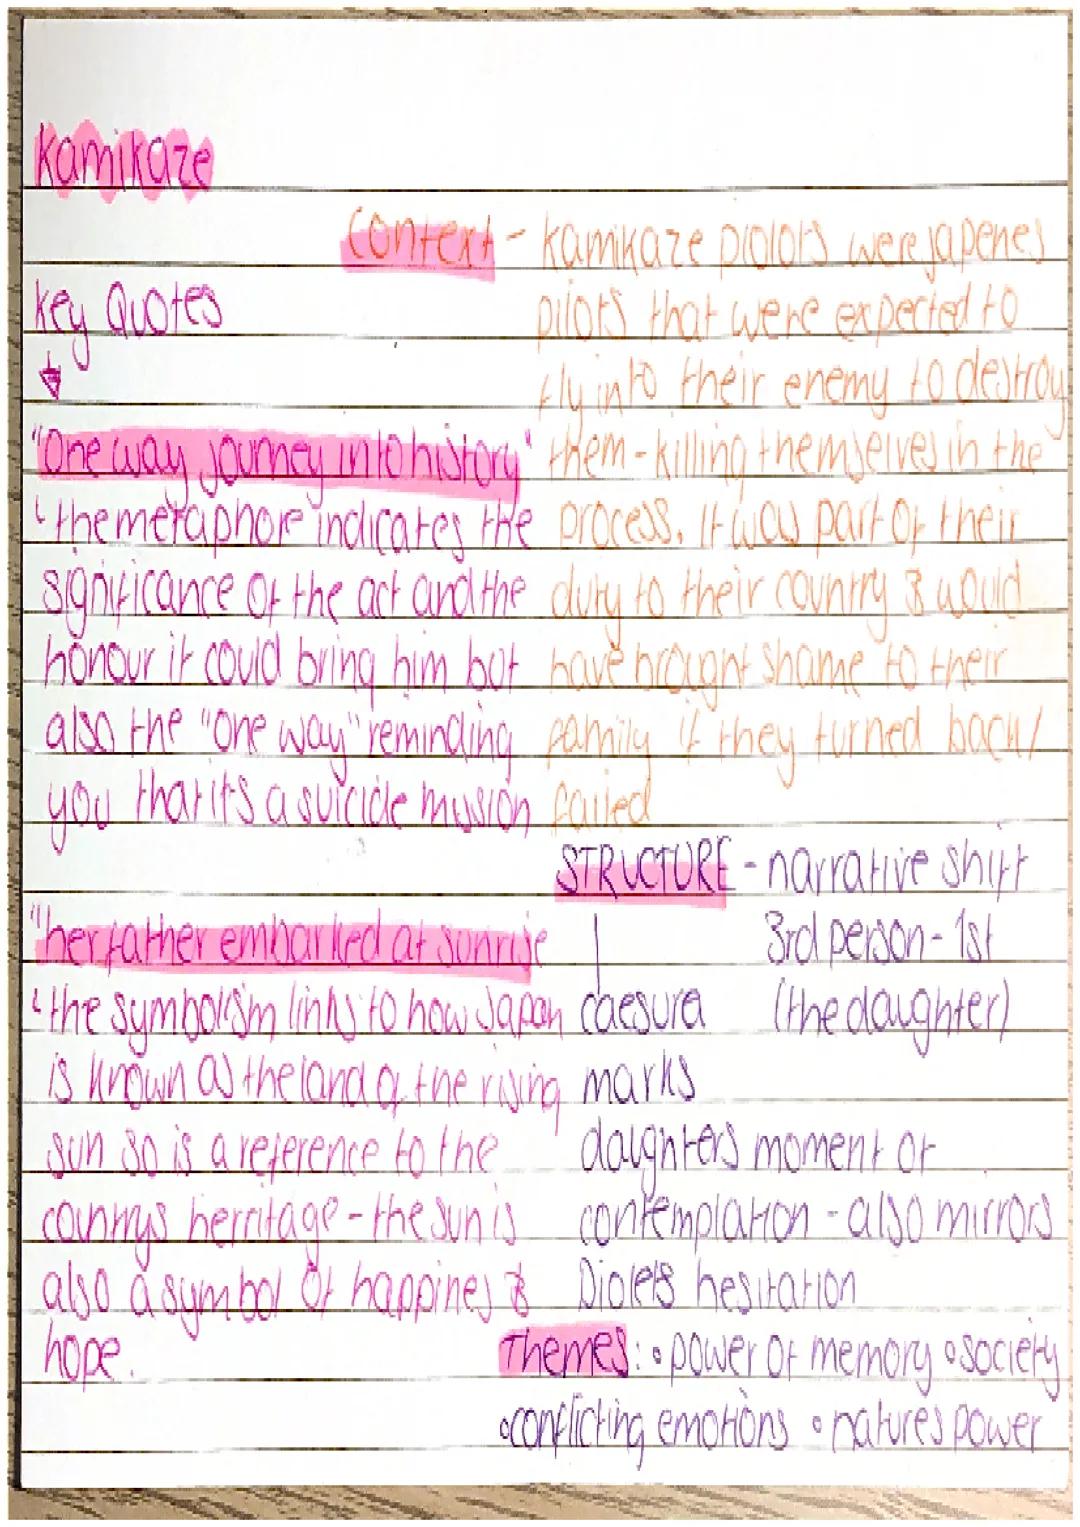 Kamikaze
Context - Kamikaze piolots were japenes
pilots that were expected to
fly into their enemy to destroy
them - killing themselves in the
process. It was part of their
duty to their country & would
have brought shame to their
family if they turned back/
failed
Key Quotes
"One way journey into history"
the metaphore indicates the
significance of the act and the
honour it could bring him but
also the "One way" reminding
you that its a suicide mission
"her father embarked at sunrise
the symbolism links to how Japan
is known as the land of the rising
sun so is a reference to the
countrys herritage - the sun is
also a symbol of happines &
hope.
STRUCTURE - narrative shift
3rd person - 1st
(the daughter)
caesura
marks
daughters moment of
contemplation - also mirrors
Piolets hesitation
Themes: • power of memory • society
• conflicting emotions • natures power